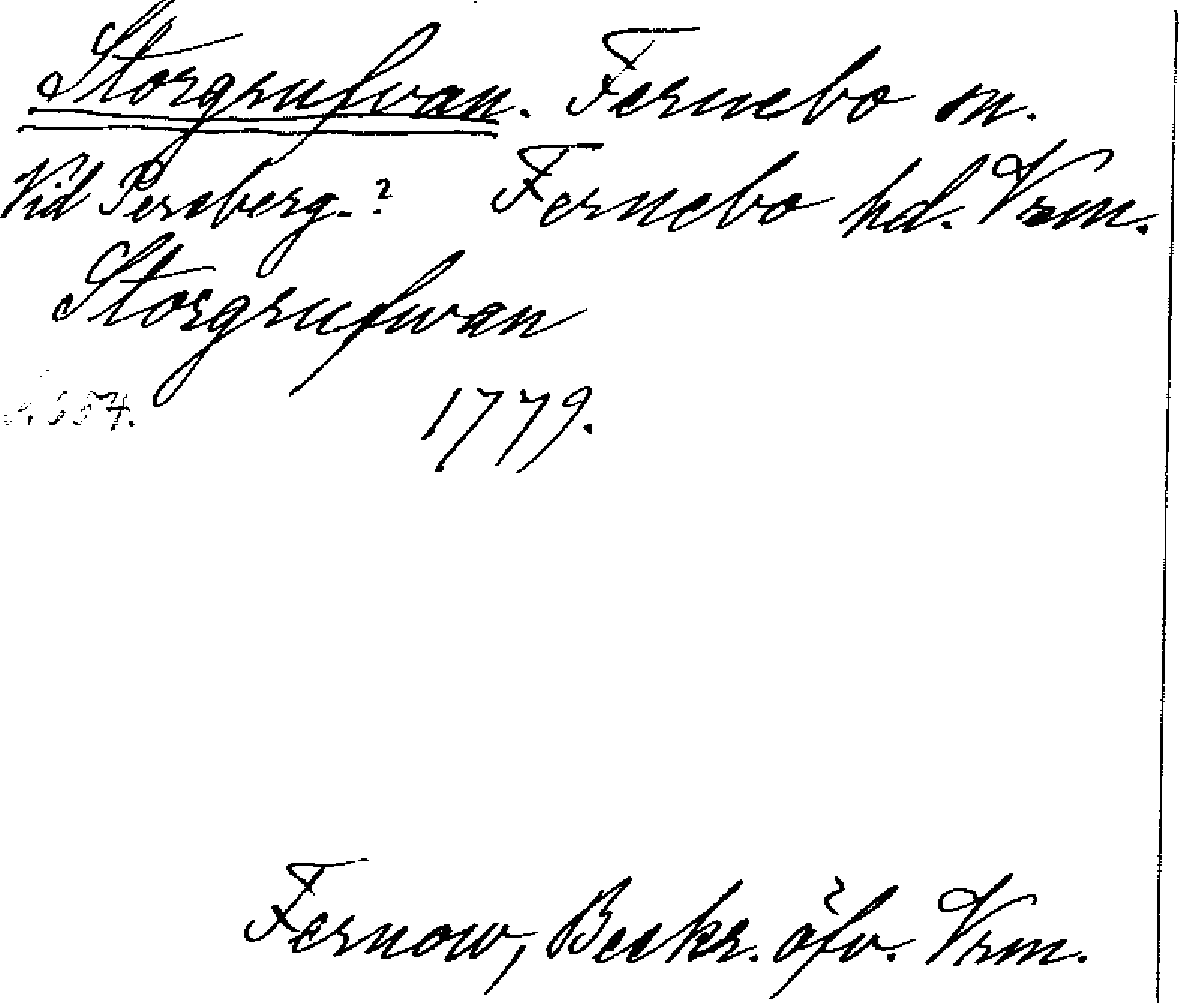 Storgrufvan. Fernebo sn.
Vid Persberg.? Fernebo hd. Vrm.
Storgrufwan
s. 654. 1779.
Fernow, Beskr. öfv. Vrm.